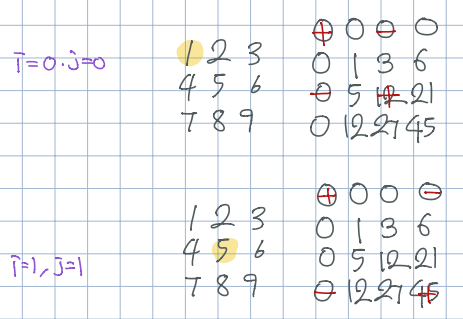 0 0 0 0
i=0, j=0 1 2 3 0 1 3 6
4 5 6 0 5 12 21
7 8 9 0 12 27 45
0 0 0 0
1 2 3 0 1 3 6
i=1, j=1 4 5 6 0 5 12 21
7 8 9 0 12 27 45